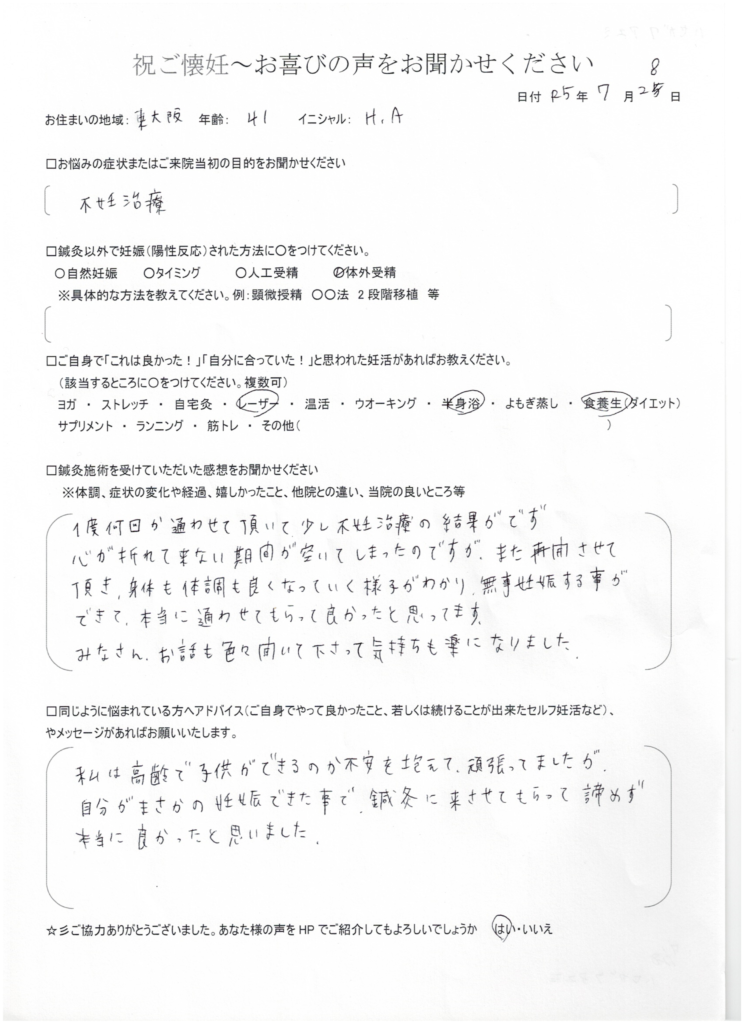 祝ご懐妊～お喜びの声をお聞かせください
8
日付 R5年 7月 25日
お住まいの地域: 東大阪 年齢: 41 イニシャル: H.A
□お悩みの症状またはご来院当初の目的をお聞かせください
不妊治療
□鍼灸以外で妊娠（陽性反応）された方法に○をつけてください。
○自然妊娠 ○タイミング ○人工受精 ○体外受精
※具体的な方法を教えてください。例：顕微授精 ○○法 2段階移植 等
□ご自身で「これは良かった！」「自分に合っていた！」と思われた妊活があればお教えください。
（該当するところに○をつけてください。複数可）
ヨガ ・ ストレッチ ・ 自宅灸 ・ レーザー ・ 温活 ・ ウオーキング ・ 半身浴 ・ よもぎ蒸し ・ 食養生（ダイエット）
サプリメント ・ ランニング ・ 筋トレ ・ その他（ ）
□鍼灸施術を受けていただいた感想をお聞かせください
※体調、症状の変化や経過、嬉しかったこと、他院との違い、当院の良いところ等
1度何回か通わせて頂いて、少し不妊治療の結果がでず
心が折れて来ない期間が空いてしまったのですが、また再開させて
頂き、身体も体調も良くなっていく様子がわかり、無事妊娠する事が
できて、本当に通わせてもらって良かったと思ってます。
みなさん、お話も色々聞いて下さって気持ちも楽になりました。
□同じように悩まれている方へアドバイス（ご自身でやって良かったこと、若しくは続けることが出来たセルフ妊活など）、
やメッセージがあればお願いいたします。
私は高齢で子供ができるのか不安を抱えて、頑張ってましたが、
自分がまさかの妊娠できた事で、鍼灸に来させてもらって諦めず
本当に良かったと思いました。
☆彡ご協力ありがとうございました。あなた様の声をHPでご紹介してもよろしいでしょうか はい・いいえ